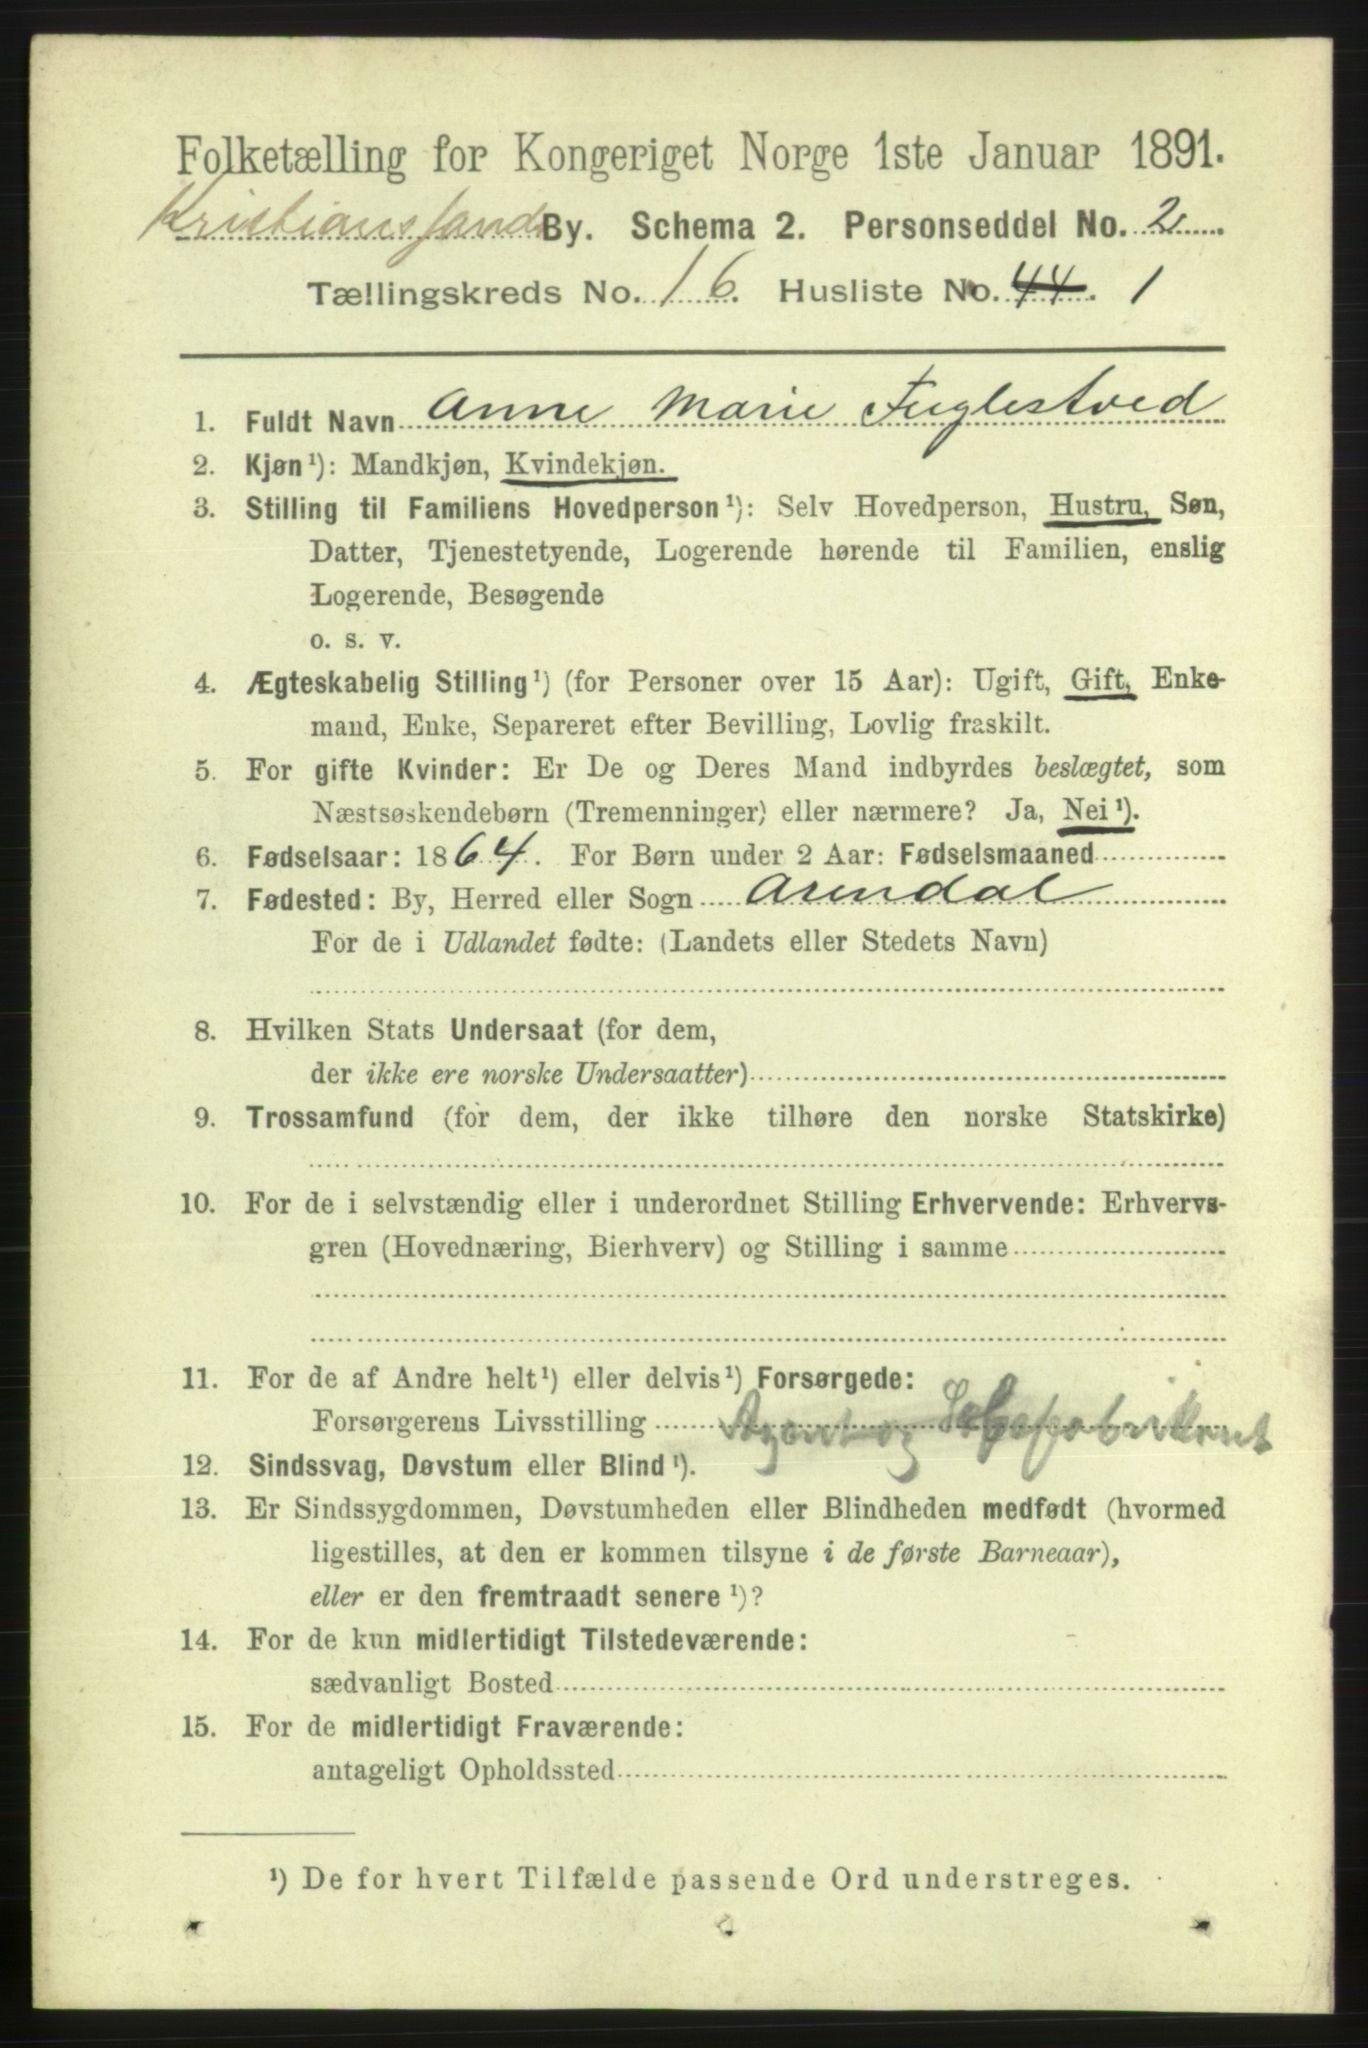 Folketælling for Kongeriget Norge 1ste Januar 1891.
Kristianssands By. Schema 2. Personseddel No. 2
Tællingskreds No. 16. Husliste No. 44. 1
1. Fuldt Navn Anne Marie Fuglestved
2. Kjøn¹): Mandkjøn, Kvindekjøn.
3. Stilling til Familiens Hovedperson¹): Selv Hovedperson, Hustru, Søn,
Datter, Tjenestetyende, Logerende hørende til Familien, enslig
Logerende, Besøgende
o. s. v.
4. Ægteskabelig Stilling¹) (for Personer over 15 Aar): Ugift, Gift, Enke-
mand, Enke, Separeret efter Bevilling, Lovlig fraskilt.
5. For gifte Kvinder: Er De og Deres Mand indbyrdes beslægtet, som
Næstsøskendebørn (Tremenninger) eller nærmere? Ja, Nei¹).
6. Fødselsaar: 1864. For Børn under 2 Aar: Fødselsmaaned
7. Fødested: By, Herred eller Sogn Arendal
For de i Udlandet fødte: (Landets eller Stedets Navn)
8. Hvilken Stats Undersaat (for dem,
der ikke ere norske Undersaatter)
9. Trossamfund (for dem, der ikke tilhøre den norske Statskirke)
10. For de i selvstændig eller i underordnet Stilling Erhvervende: Erhvervs-
gren (Hovednæring, Bierhverv) og Stilling i samme
11. For de af Andre helt¹) eller delvis¹) Forsørgede:
Forsørgerens Livsstilling Agent og
12. Sindssvag, Døvstum eller Blind¹).
13. Er Sindssygdommen, Døvstumheden eller Blindheden medfødt (hvormed
ligestilles, at den er kommen tilsyne i de første Barneaar),
eller er den fremtraadt senere¹)?
14. For de kun midlertidigt Tilstedeværende:
sædvanligt Bosted
15. For de midlertidigt Fraværende:
antageligt Opholdssted
¹) De for hvert Tilfælde passende Ord understreges.